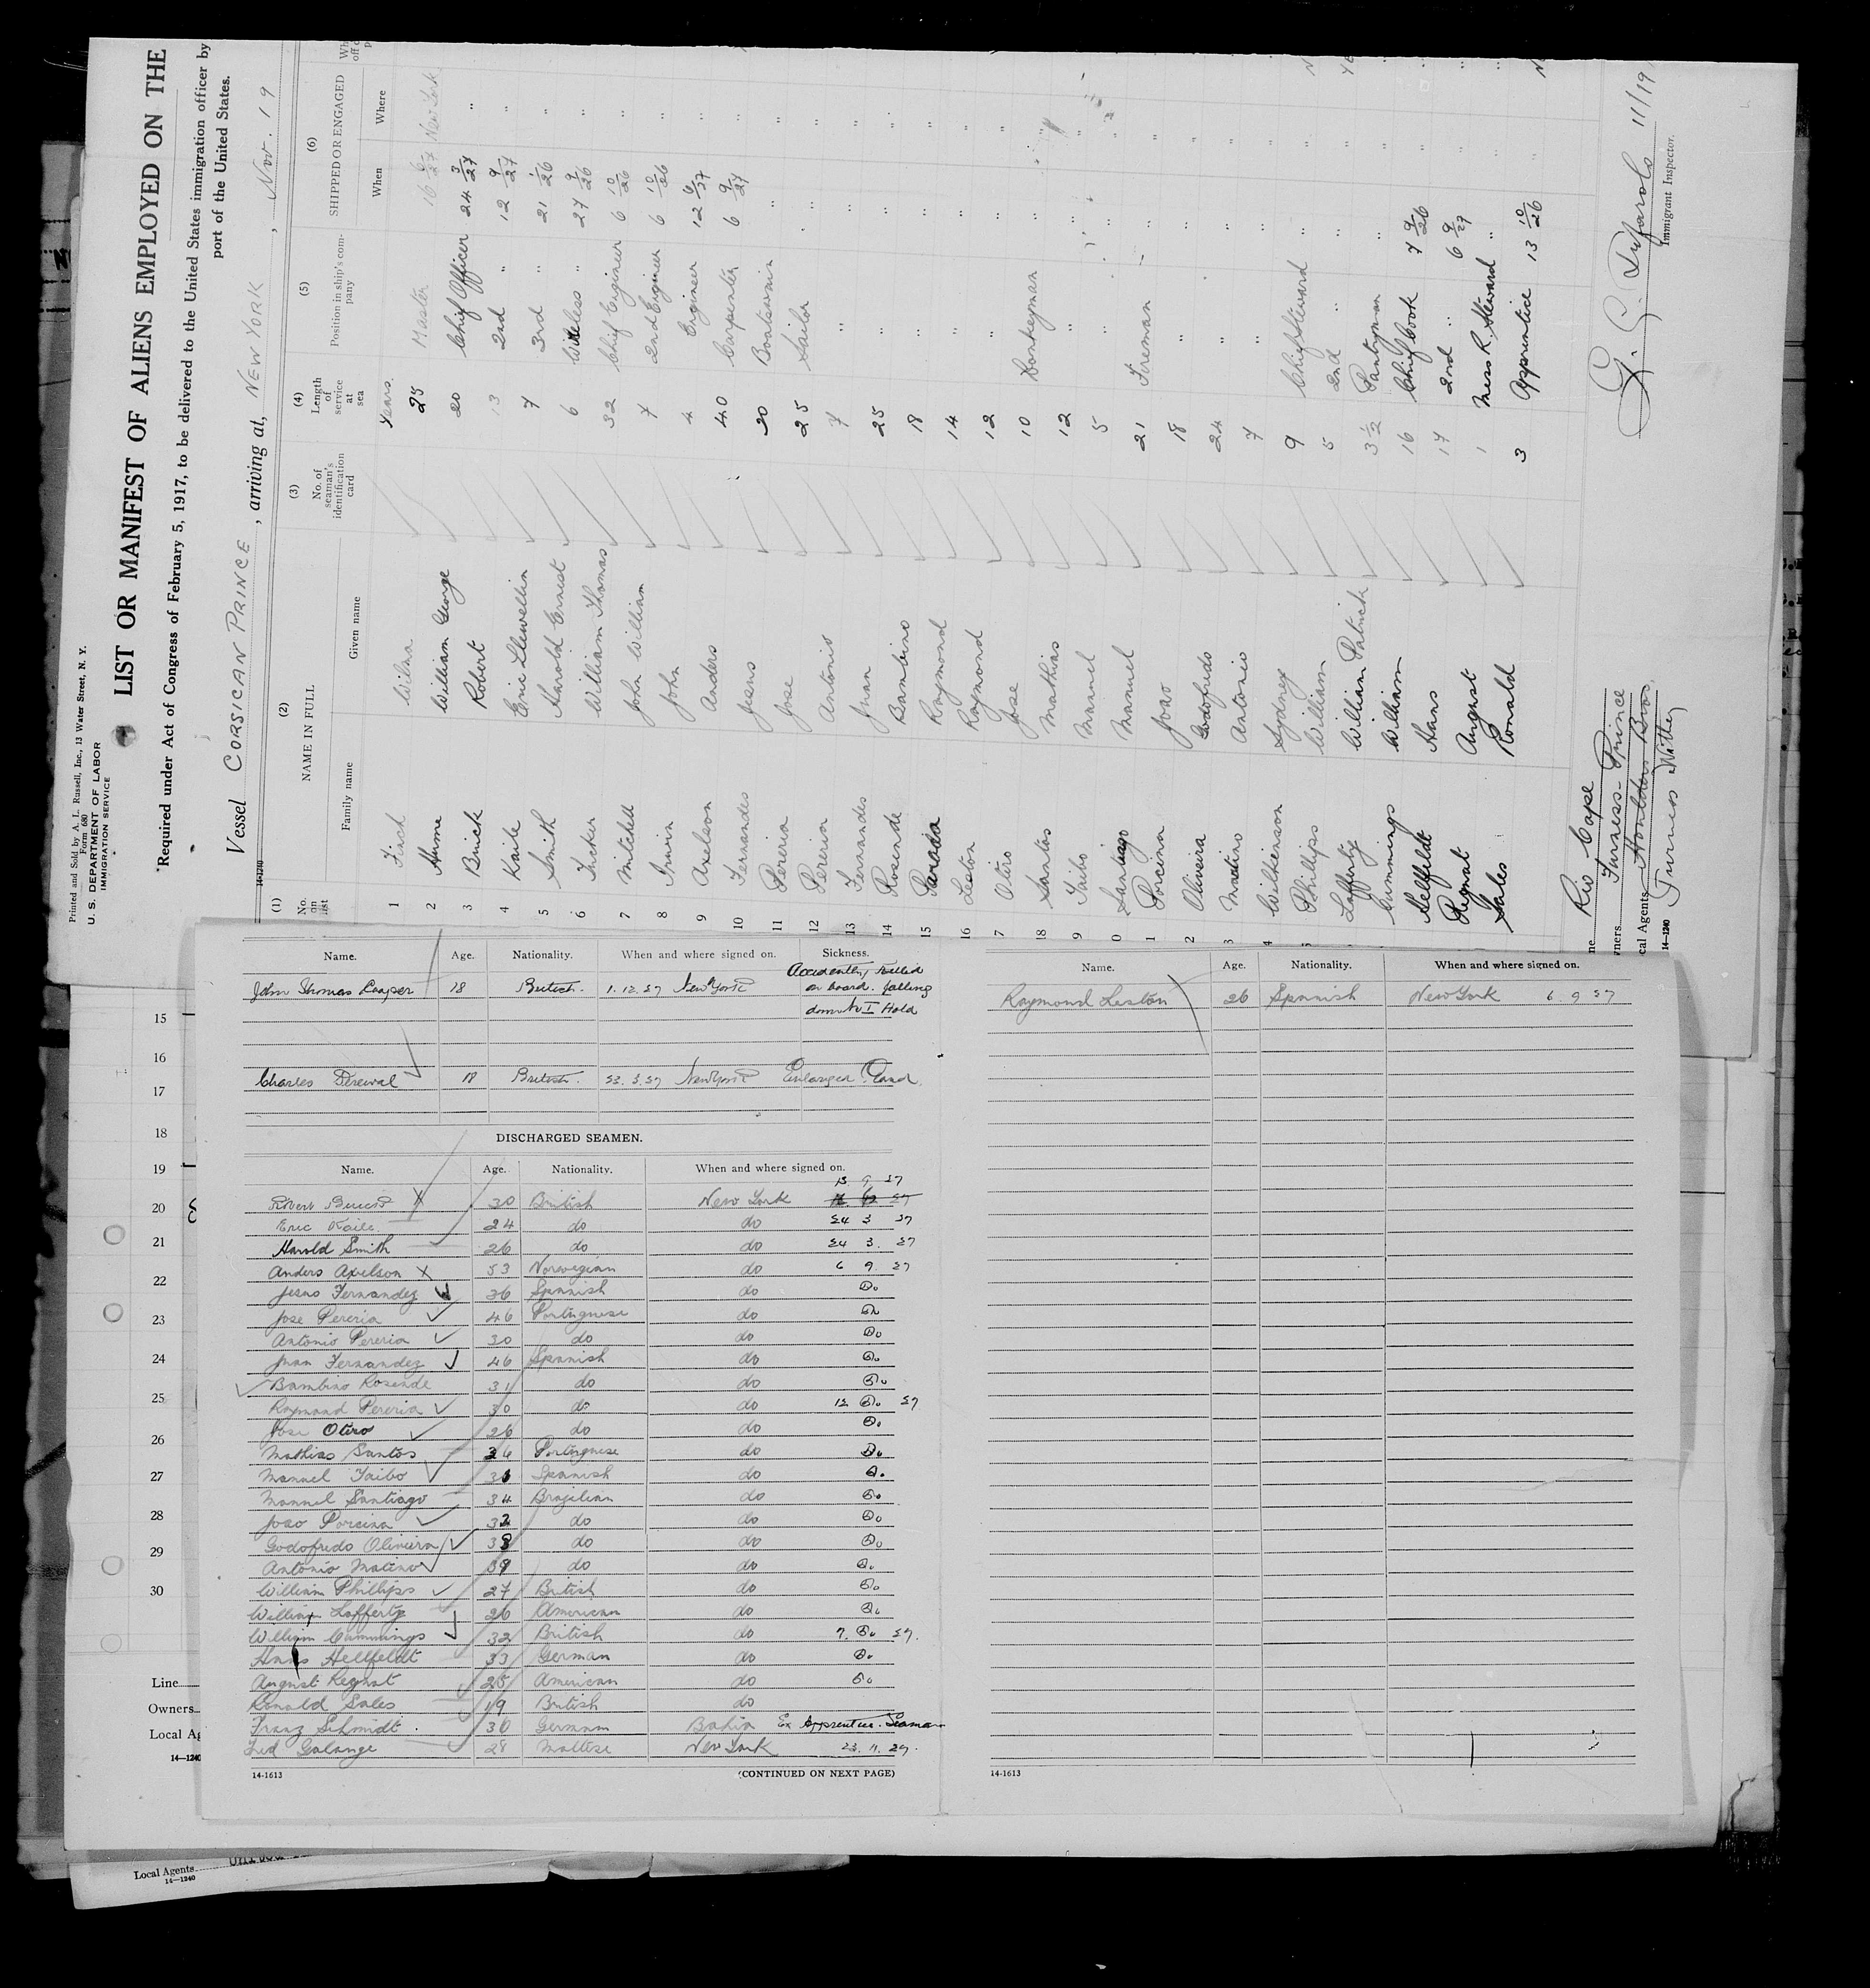 Printed and Sold by A. L. Russell, Inc., 13 Water Street, N. Y.
Form 680
U. S. DEPARTMENT OF LABOR
IMMIGRATION SERVICE
LIST OR MANIFEST OF ALIENS EMPLOYED ON THE
Required under Act of Congress of February 5, 1917, to be delivered to the United States immigration officer by
port of the United States.
Vessel CORSICAN PRINCE, arriving at, NEW YORK, Nov. 19
14-1240
(1) (2) (3) (4) (5) (6)
No. on list NAME IN FULL No. of seaman's identification card Length of service at sea Position in ship's company SHIPPED OR ENGAGED
Family name Given name When Where
Years
1 Finch 25 Master 16 6/27 New York
2 Hume William George 20 Chief Officer 24 3/27 "
3 Robert 13 2nd " 12 9/27 "
4 Kaile Eric Llewellin 7 3rd " 21 1/26 "
5 Smith Harold Ernest 6 Wireless " 27 9/26 "
6 Tucker William Thomas 32 Chief Engineer 6 10/26 "
7 Mitchell John William 7 2nd Engineer 6 10/26 "
8 Irwin John 4 Engineer 12 6/27 "
9 Axelson Anders 40 Carpenter 6 9/27 "
10 Fernandes Jesus 30 Boatswain " "
11 Pereria Jose 25 Sailor " "
12 Pereria Antonio 7 " " "
13 Fernandes Juan 25 " " "
14 Rosende Bambino 18 " " "
15 Raymond 14 " " "
16 Leston Raymond 12 " " "
7 Otiro Jose 10 Donkeyman " "
18 Santos Mathias 12 " " "
9 Taibo Manuel 5 " " "
0 Santiago Manuel 21 Fireman " "
1 Porcina Joao 18 " " "
2 Oliveira Godofredo 24 " " "
3 Matino Antonio 7 " " "
4 Wilkinson Sydney 9 Chief Steward " "
5 Phillips William 5 2nd " " "
Lafferty William Patrick 3 1/2 Pantryman " "
Cummings William 16 Chief Cook 7 9/26 "
Hellfeldt Hans 17 2nd " 6 9/27 "
Regnat August 1 Mess R. Steward " "
Sales Ronald 3 Apprentice 13 10/26 "
ne Rio Cape
ners Furness-Prince
cal Agents Houlder Bros
Furness Withy
14-1240
11/19
Immigrant Inspector.
Name. Age. Nationality. When and where signed on. Sickness.
John Thomas Cooper 18 British. 1. 12. 27 New York Accidently Killed
on board. falling
down No I Hold
Charles 18 British. 23. 3. 27 New York Enlarged Gland
DISCHARGED SEAMEN.
Name. Age. Nationality. When and where signed on.
13 9 27
Robert 30 British New York
Eric Kaile 24 do do 24 3 27
Harold Smith 26 do do 24 3. 27
Anders Axelson X 53 Norwegian do 6 9 27
Jesus Fernandez 36 Spanish do Do
Jose Pereria 46 Portuguese do Do
Antonio Pereria 30 do do Do
Juan Fernandez 46 Spanish do Do
Bambino Rosende 31 do do Do
Raymond Pereria 30 do do 12 Do 27
Jose Otiro 26 do do Do
Mathias Santos 36 Portuguese do Do
Manuel Taibo Spanish do Do
Manuel Santiago 34 Brazilian do Do
Joao Porcina 32 do do Do
Godofredo Oliviera 38 do do Do
Antonio Matino 39 do do Do
William Phillips 27 British do Do
William Lafferty 26 American do Do
William Cummings 32 British do 7. Do 27.
Hans Hellfeldt 33 German do Do
August Regnat 25 American do Do
Ronald Sales 19 British do
Franz Schmidt 30 German Bahia Ex Apprentice. Seaman
Fred Galange 28 Maltese New York 23. 11. 27.
14-1613 (CONTINUED ON NEXT PAGE)
Name. Age. Nationality. When and where signed on.
Raymond Leston 26 Spanish New York 6 9 27
14-1613
15
16
17
18
19
20
21
22
23
24
25
26
27
28
29
30
Line
Owners
Local Ag
14-1240
Local Agents
14-1240